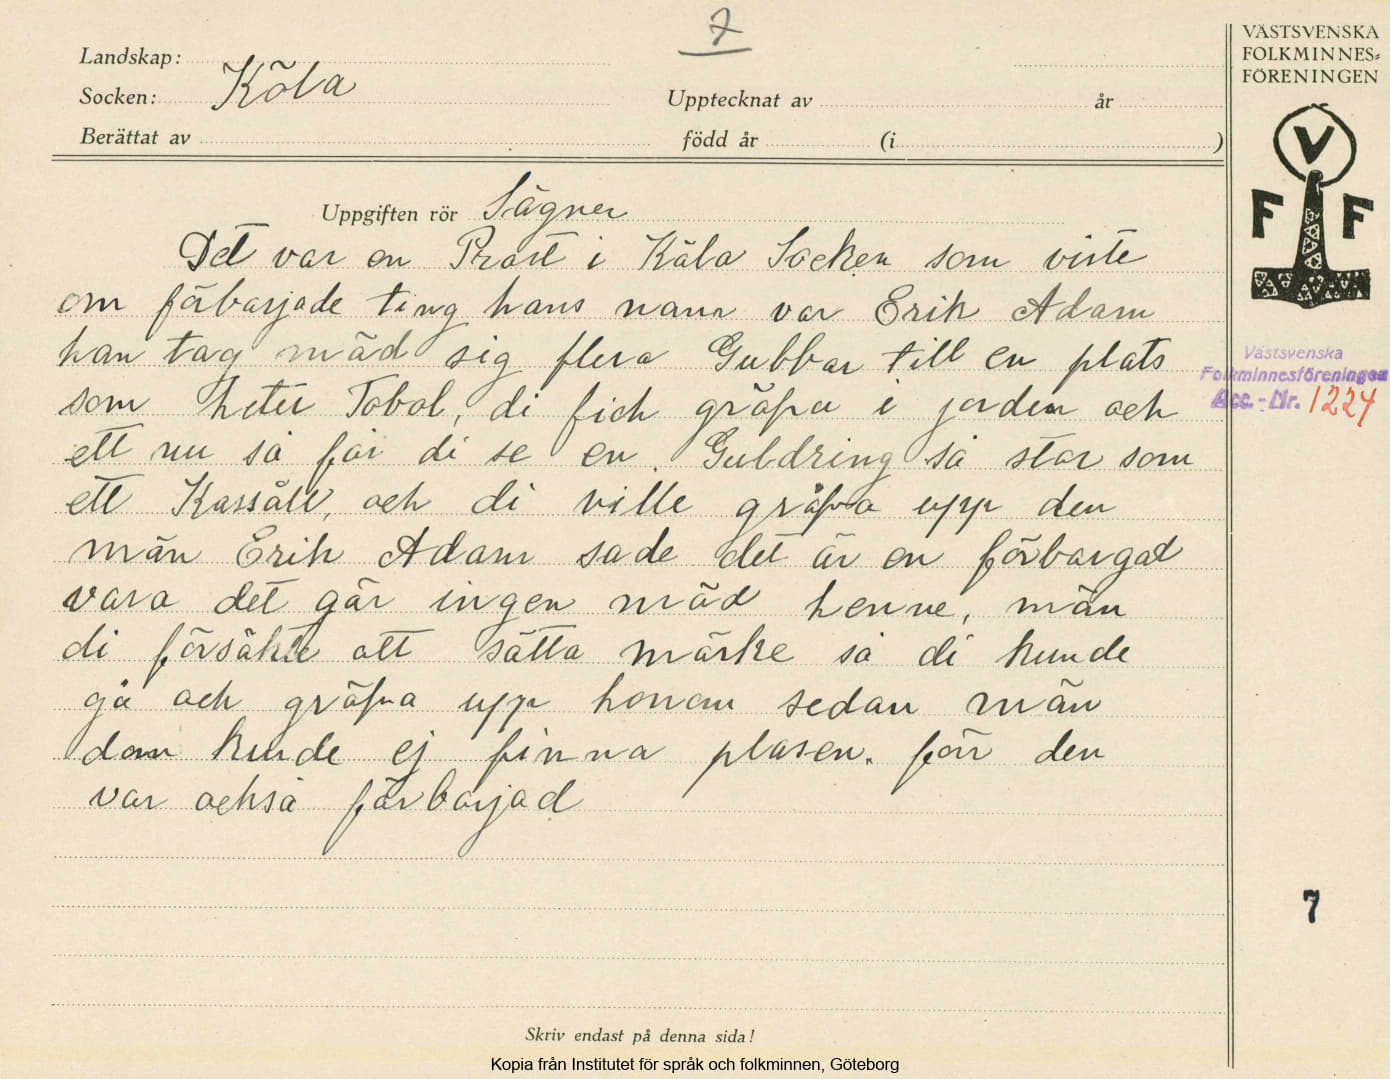 7
VÄSTSVENSKA
FOLKMINNES=
FÖRENINGEN
Landskap:
Socken: Köla
Upptecknat av år
Berättat av född år (i )
V
F F
Uppgiften rör Sägner
Det var en Prost i Köla Socken som viste
om förbarjade ting hans namn var Erik Adam
han tag mäd sig flera Gubbar till en plats
som heter Tobol, di fick gräfva i jorden och
rätt nu så får di se en Guldring så stor som
ett Kassåll, och di ville gräfva upp den
män Erik Adam sade det är en förbargad
vara det går ingen mäd henne, män
di försökte att sätta märke så di kunde
gå och gräfva upp honom sedan män
dom kunde ej finna plasen. för den
var också förbarjad
Västsvenska
Folkminnesföreningen
Acc. - Nr. 1224
7
Skriv endast på denna sida!
Kopia från Institutet för språk och folkminnen, Göteborg